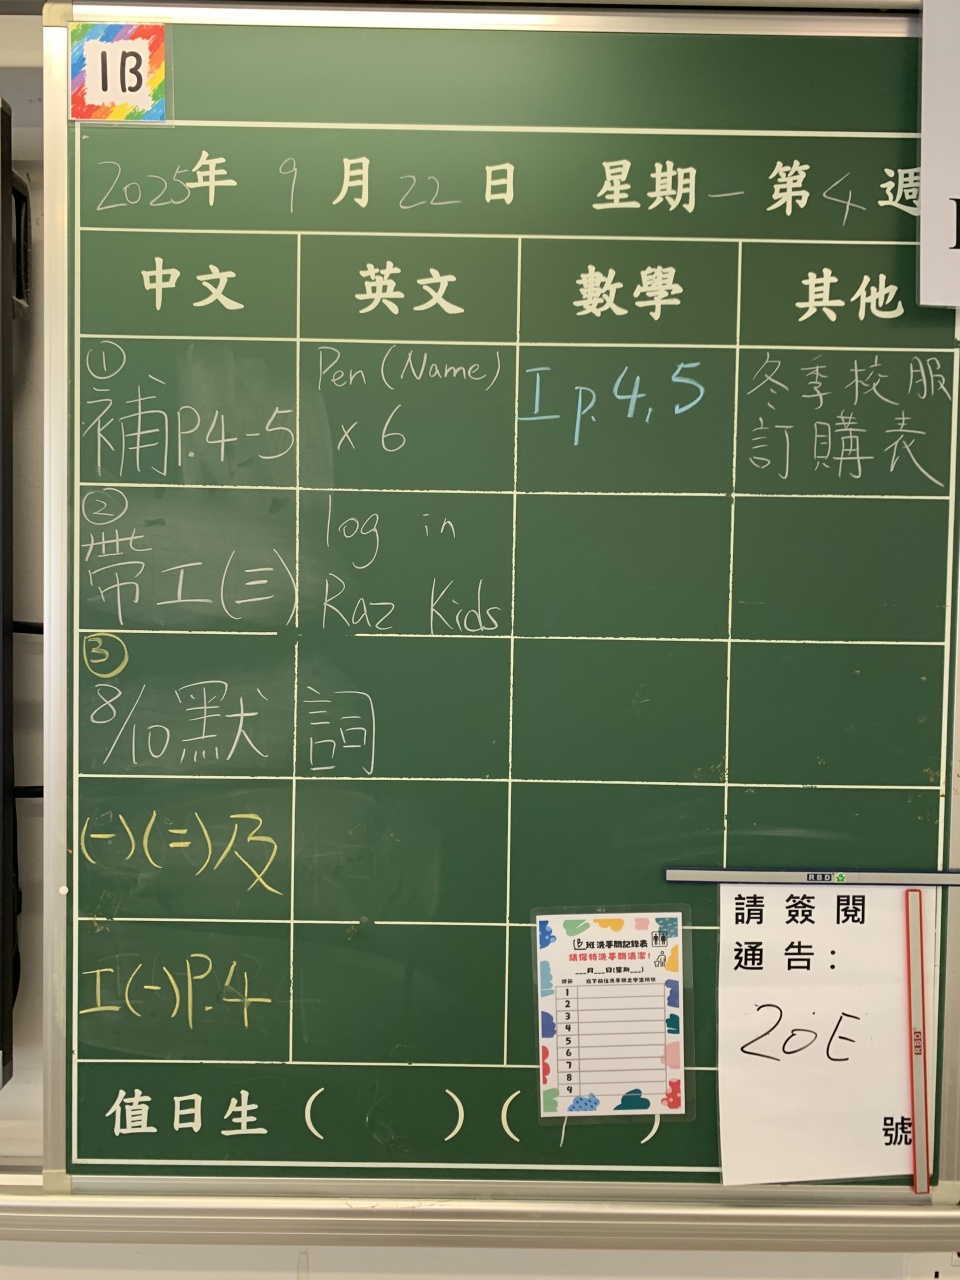 1B
2025年 9月22日 星期一 第4週
中文 英文 數學 其他
①
補P.4-5
Pen (Name)
x 6
I p.4,5
冬季校服
訂購表
②
帶工(三)
log in
Raz Kids
③
8/10默詞
(一)(二)及
工(一)P.4
值日生 ( ) ( )
1B班洗手間記錄表
請保持洗手間清潔！
___月___日(星期___)
1
2
3
4
5
6
7
8
9
RBD
請簽閱
通告：
20E
號
RBD